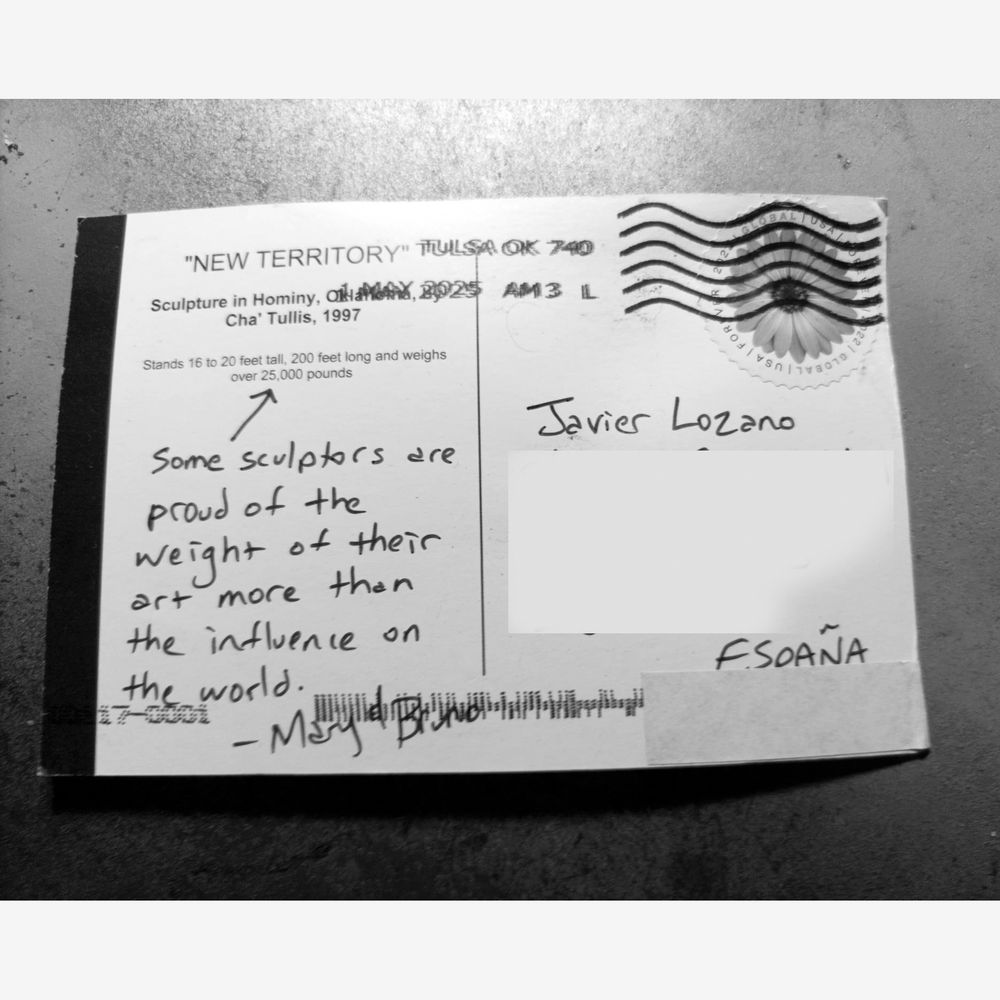 "NEW TERRITORY"
Sculpture in Hominy, Oklahoma, by
Cha' Tullis, 1997
Stands 16 to 20 feet tall, 200 feet long and weighs
over 25,000 pounds
Some sculptors are
proud of the
weight of their
art more than
the influence on
the world.
- Mary d Bruno
TULSA OK 740
1 MAY 2025 AM 3 L
GLOBAL | USA | FOREVER 2022 | GLOBAL | USA | FOREVER 2022
Javier Lozano
ESPAÑA